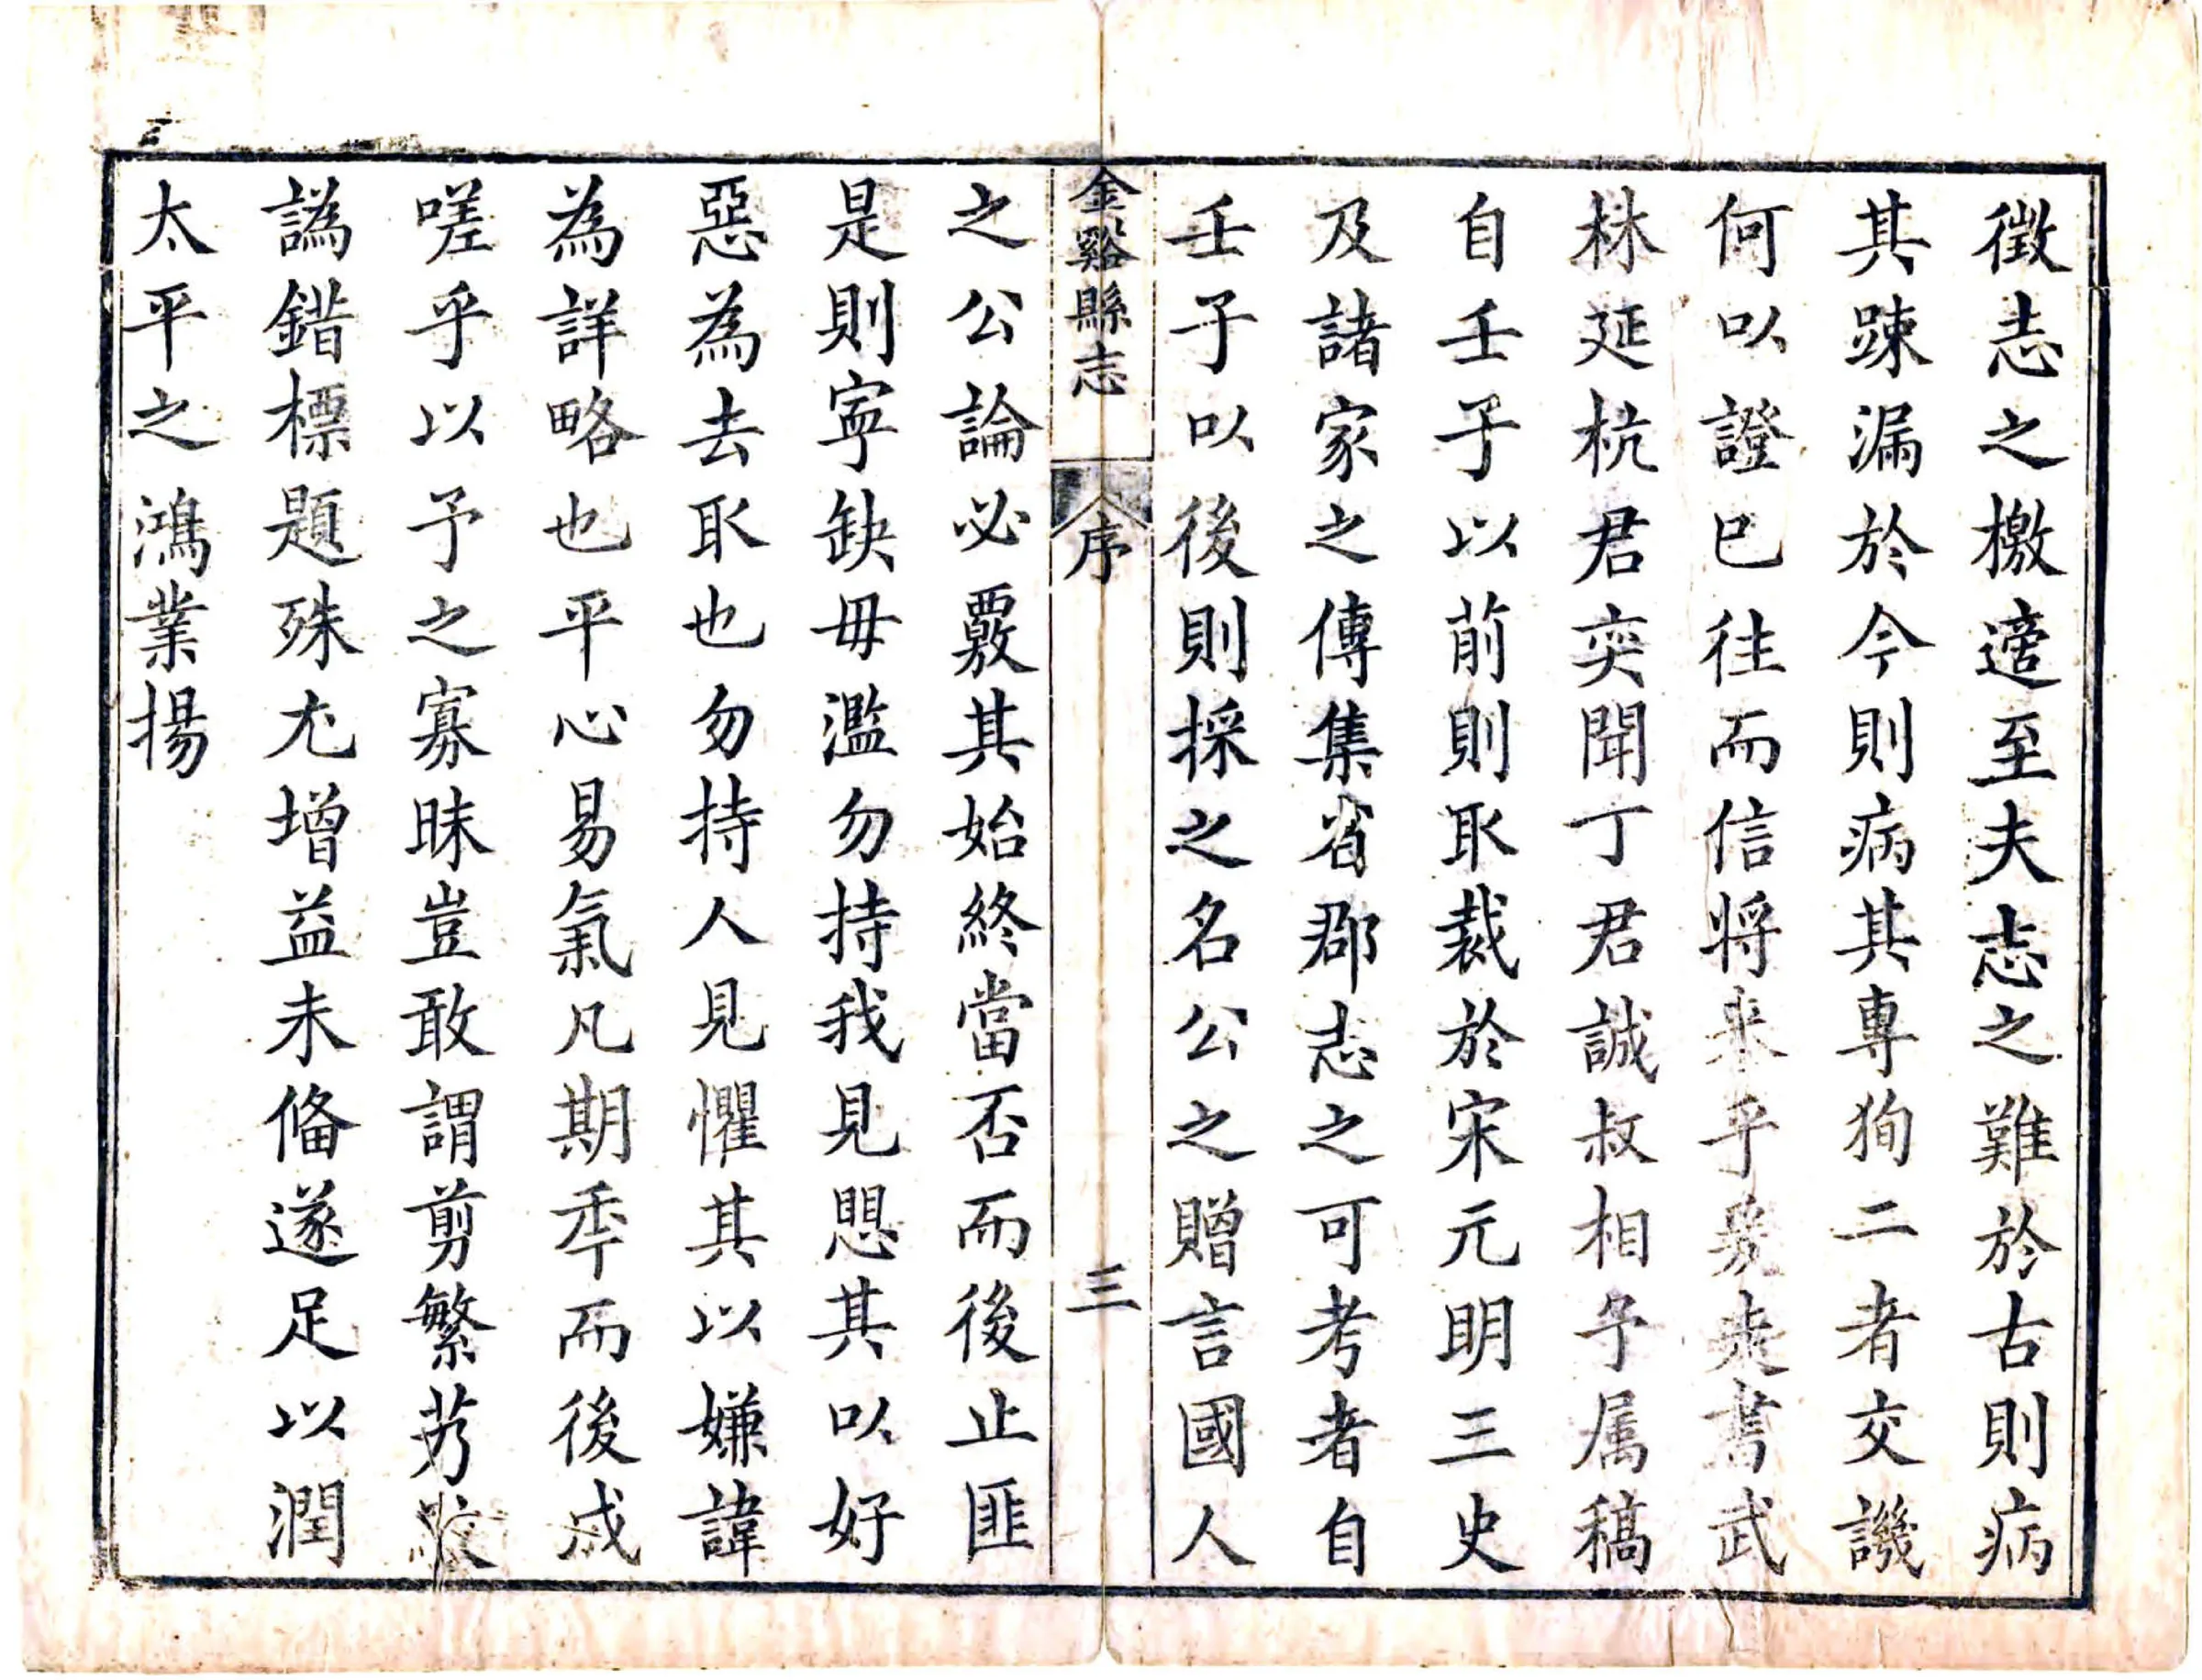 徵志之檄適至夫志之難於古則病
其踈漏於今則病其專狥二者交譏
何以證已徃而信將来乎爰走書武
林延杭君奕聞丁君誠叔相予属稿
自壬子以前則取裁於宋元明三史
及諸家之傳集省郡志之可考者自
壬子以後則採之名公之贈言國人
金谿縣志
序
三
之公論必覈其始終當否而後止匪
是則寧缺毋濫勿持我見愳其以好
惡為去取也勿持人見懼其以嫌諱
為詳略也平心易氣凡期秊而後成
嗟乎以予之寡昧豈敢謂剪繁芳
譌錯標題殊尤增益未俻遂足以潤
太平之鴻業揚